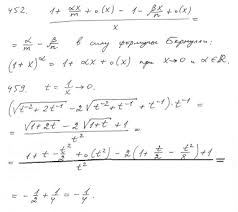 452. (1 + αx/m + o(x) - 1 - βx/n + o(x)) / x =
= α/m - β/n в силу формулы Бернулли:
(1 + x)^α = 1 + αx + o(x) при x→0 и α∈ℝ.
459. t = 1/x → 0.
(√(t⁻² + 2t⁻¹) - 2√(t⁻² + t⁻¹) + t⁻¹)·t⁻¹ =
= (√(1+2t) - 2√(1+t) + 1) / t² =
= (1 + t - t²/2 + o(t²) - 2(1 + t/2 - t²/8) + 1) / t² =
= -1/2 + 1/4 = -1/4.